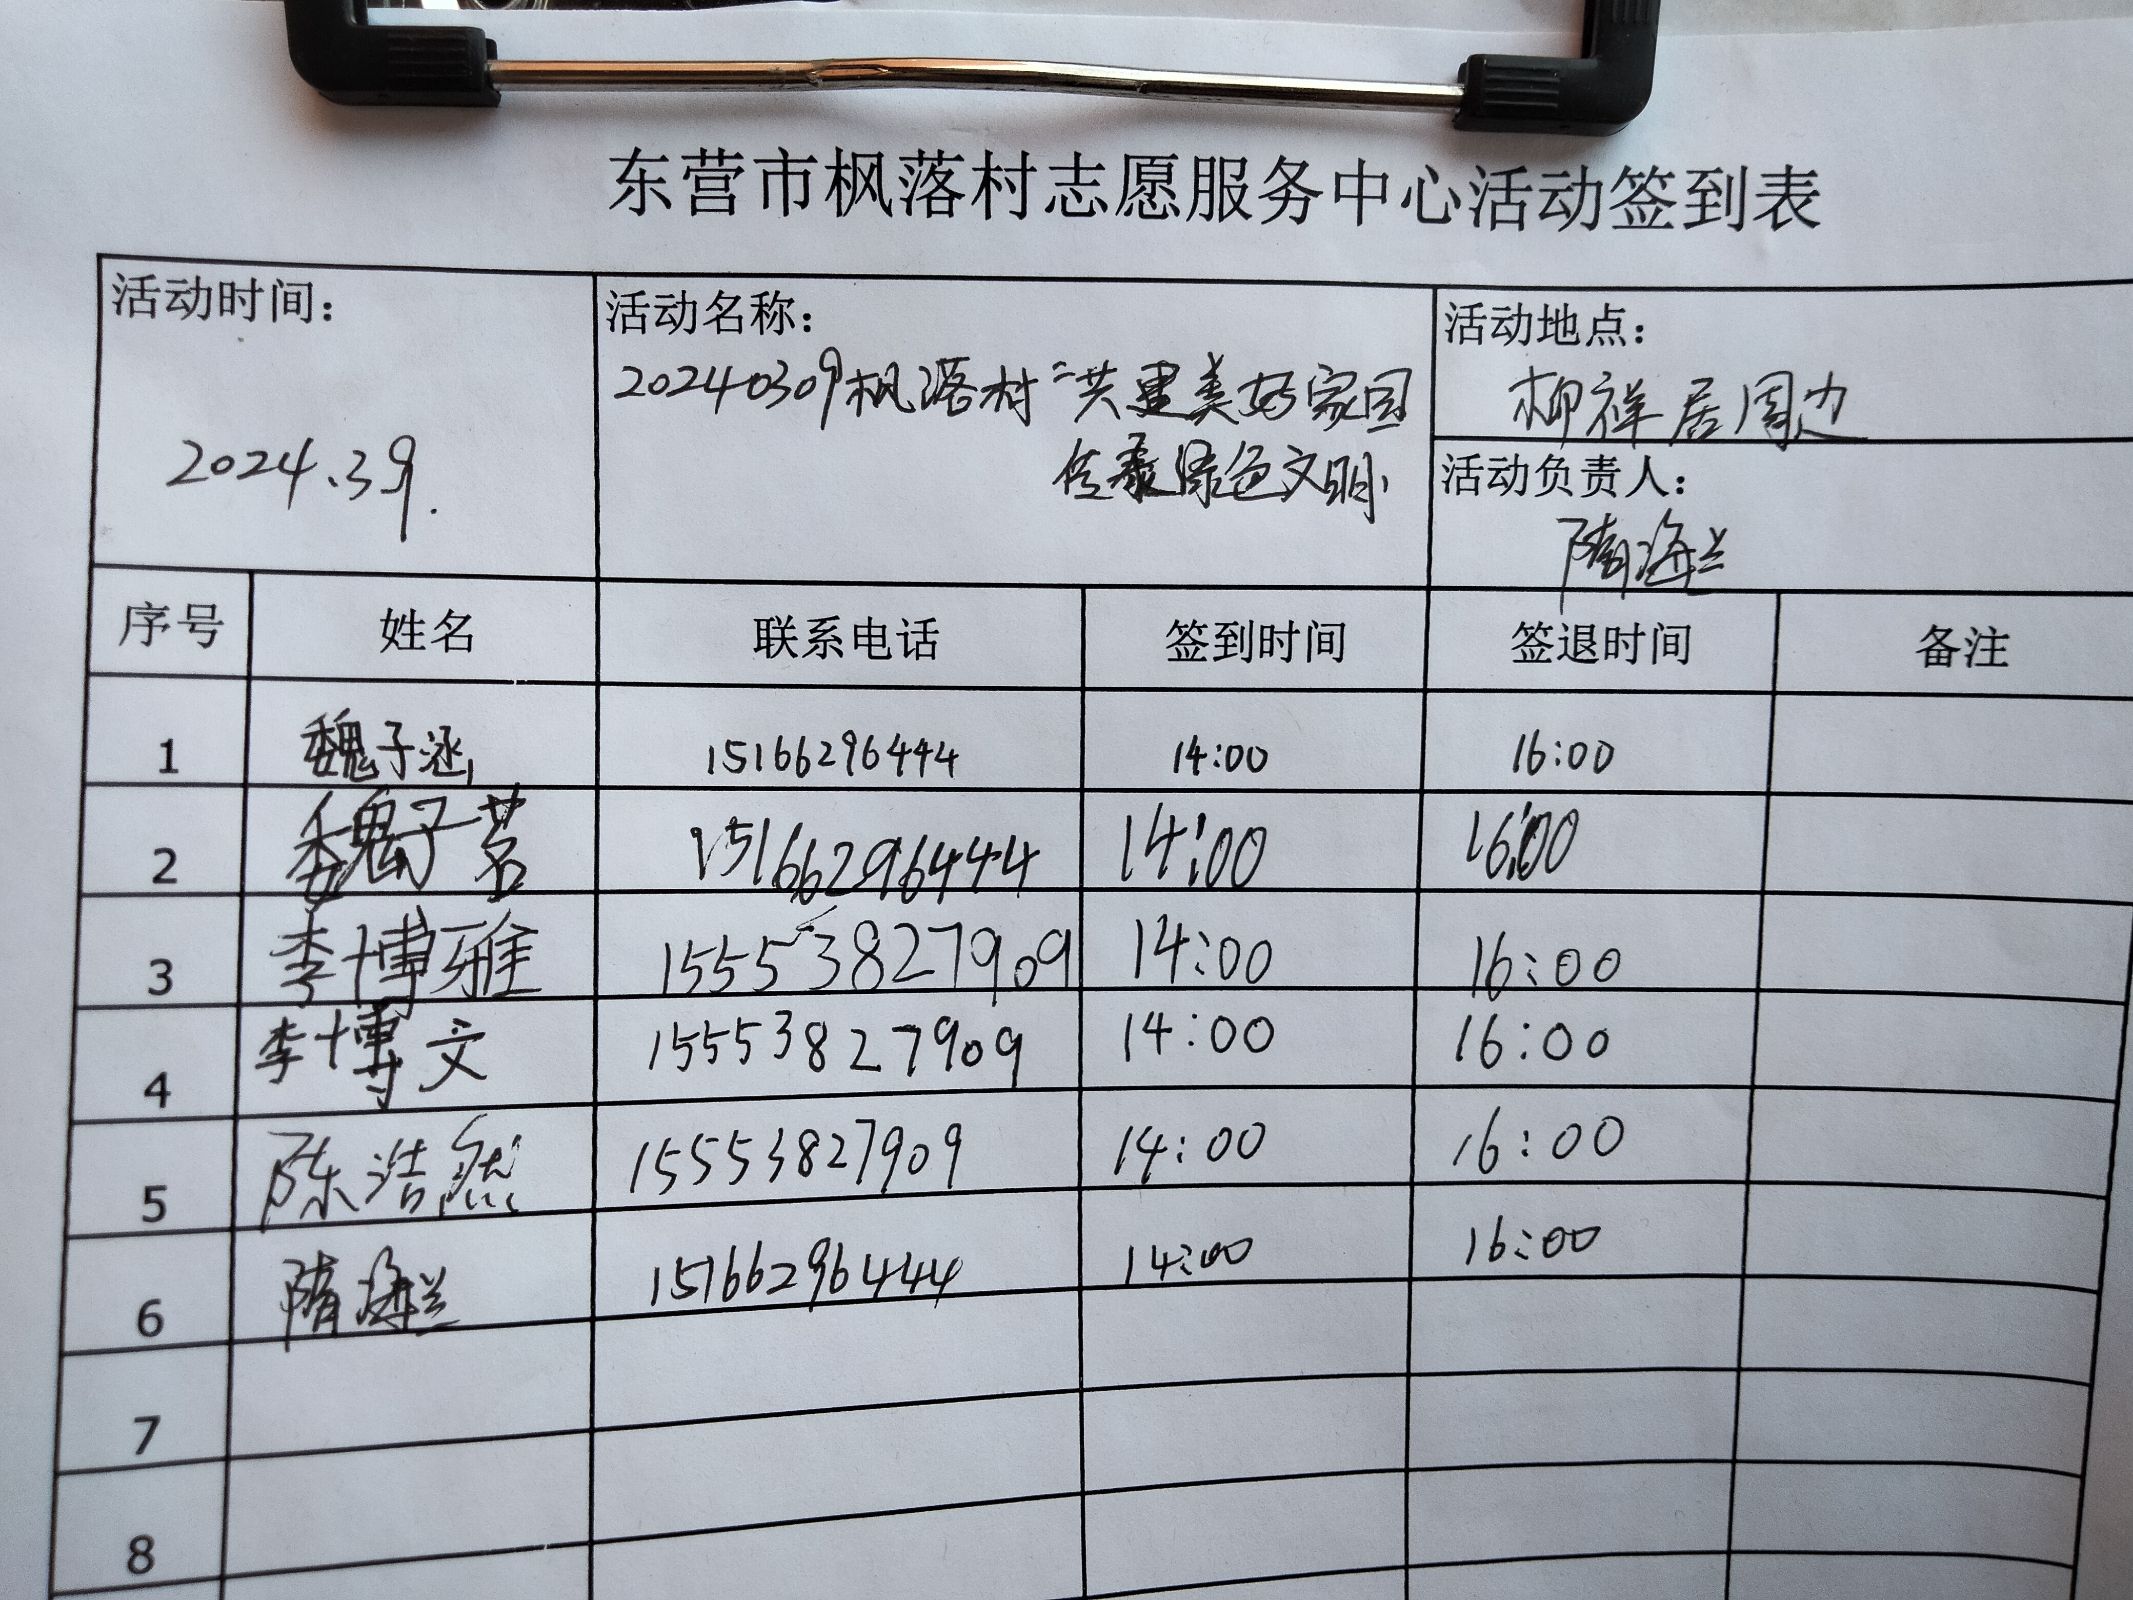 东营市枫落村志愿服务中心活动签到表
活动时间：
2024.3.9.
活动名称：
20240309枫落村“共建美好家园
传承绿色文明
活动地点：
柳祥居周边
活动负责人：
隋海兰
序号 姓名 联系电话 签到时间 签退时间 备注
1 魏子涵 15166296444 14:00 16:00
2 魏子茗 15166296444 14:00 16:00
3 李博雅 15553827909 14:00 16:00
4 李博文 15553827909 14:00 16:00
5 陈浩然 15553827909 14:00 16:00
6 隋海兰 15166296444 14:00 16:00
7
8